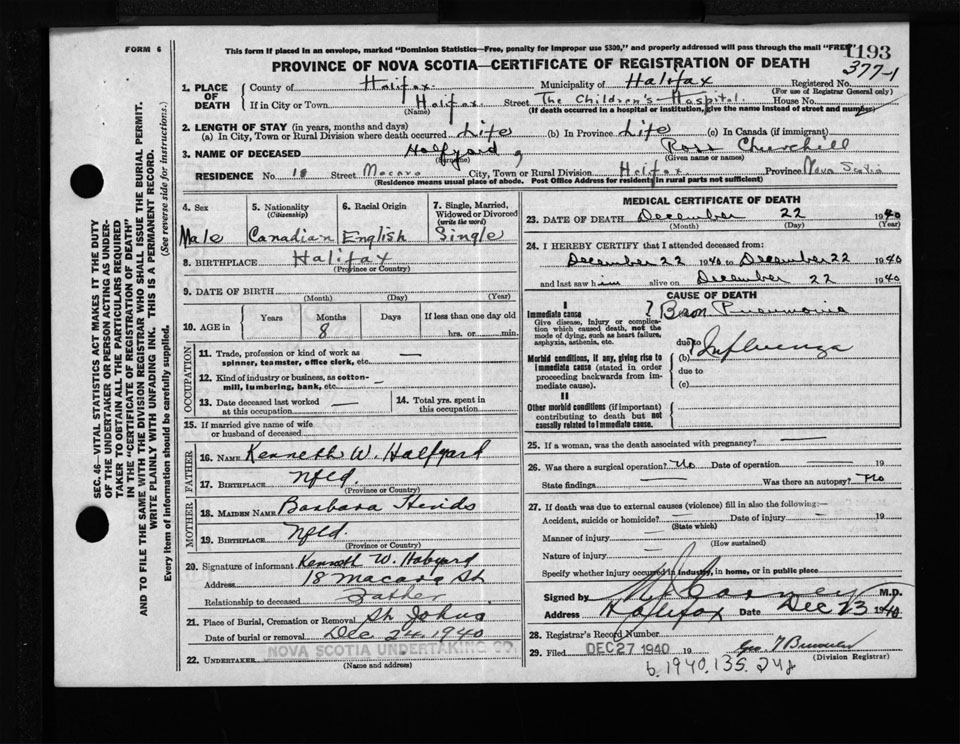 FORM 6
This form if placed in an envelope, marked "Dominion Statistics—Free, penalty for improper use $300," and properly addressed will pass through the mail "FREE"
1193
377-1
PROVINCE OF NOVA SCOTIA—CERTIFICATE OF REGISTRATION OF DEATH
1. PLACE OF DEATH
County of Halifax Municipality of Halifax Registered No.
(For use of Registrar General only)
If in City or Town Halifax Street The Children's Hospital House No.
(Name) (If death occurred in a hospital or institution, give the name instead of street and number)
2. LENGTH OF STAY (in years, months and days)
(a) In City, Town or Rural Division where death occurred Life (b) In Province Life (c) In Canada (if immigrant)
3. NAME OF DECEASED Halfyard, Ross Churchill
(Surname) (Given name or names)
RESIDENCE No. 18 Street Macara City, Town or Rural Division Halifax Province Nova Scotia
(Residence means usual place of abode. Post Office Address for residents in rural parts not sufficient)
4. Sex Male
5. Nationality (Citizenship) Canadian
6. Racial Origin English
7. Single, Married, Widowed or Divorced (write the word) Single
8. BIRTHPLACE Halifax
(Province or Country)
9. DATE OF BIRTH
(Month) (Day) (Year)
10. AGE in Years Months Days If less than one day old
8 hrs. or min.
OCCUPATION
11. Trade, profession or kind of work as spinner, teamster, office clerk, etc. —
12. Kind of industry or business, as cotton-mill, lumbering, bank, etc. —
13. Date deceased last worked at this occupation —
14. Total yrs. spent in this occupation
15. If married give name of wife or husband of deceased
FATHER
16. NAME Kenneth W. Halfyard
17. BIRTHPLACE Nfld.
(Province or Country)
MOTHER
18. MAIDEN NAME Barbara
19. BIRTHPLACE Nfld.
(Province or Country)
20. Signature of informant Kenneth W. Halfyard
Address 18 Macara St
Relationship to deceased Father
21. Place of Burial, Cremation or Removal St Johns
Date of burial or removal Dec 24 1940
22. UNDERTAKER NOVA SCOTIA UNDERTAKING CO.
(Name and address)
MEDICAL CERTIFICATE OF DEATH
23. DATE OF DEATH December 22 1940
(Month) (Day) (Year)
24. I HEREBY CERTIFY that I attended deceased from:
December 22 1940 to December 22 1940
and last saw him alive on December 22 1940
CAUSE OF DEATH
I
Immediate cause
Give disease, injury or complication which caused death, not the mode of dying, such as heart failure, asphyxia, asthenia, etc.
? Bron Pneumonia
due to
(b) Influenza
Morbid conditions, if any, giving rise to immediate cause (stated in order proceeding backwards from immediate cause).
due to
(c)
II
Other morbid conditions (if important) contributing to death but not causally related to immediate cause.
25. If a woman, was the death associated with pregnancy? —
26. Was there a surgical operation? No Date of operation — 19
State findings — Was there an autopsy? No
27. If death was due to external causes (violence) fill in also the following:—
Accident, suicide or homicide? — Date of injury — 19
(State which)
Manner of injury —
(How sustained)
Nature of injury —
Specify whether injury occurred in industry, in home, or in public place
Signed by M.D.
Address Halifax Date Dec 23 1940
28. Registrar's Record Number
29. Filed DEC 27 1940 19
(Division Registrar)
b.1940.135.248
SEC. 46—VITAL STATISTICS ACT MAKES IT THE DUTY
OF THE UNDERTAKER OR PERSON ACTING AS UNDER-
TAKER TO OBTAIN ALL THE PARTICULARS REQUIRED
IN THE "CERTIFICATE OF REGISTRATION OF DEATH"
AND TO FILE THE SAME WITH THE DIVISION REGISTRAR WHO SHALL ISSUE THE BURIAL PERMIT.
WRITE PLAINLY WITH UNFADING INK. THIS IS A PERMANENT RECORD.
Every item of information should be carefully supplied. (See reverse side for instructions.)